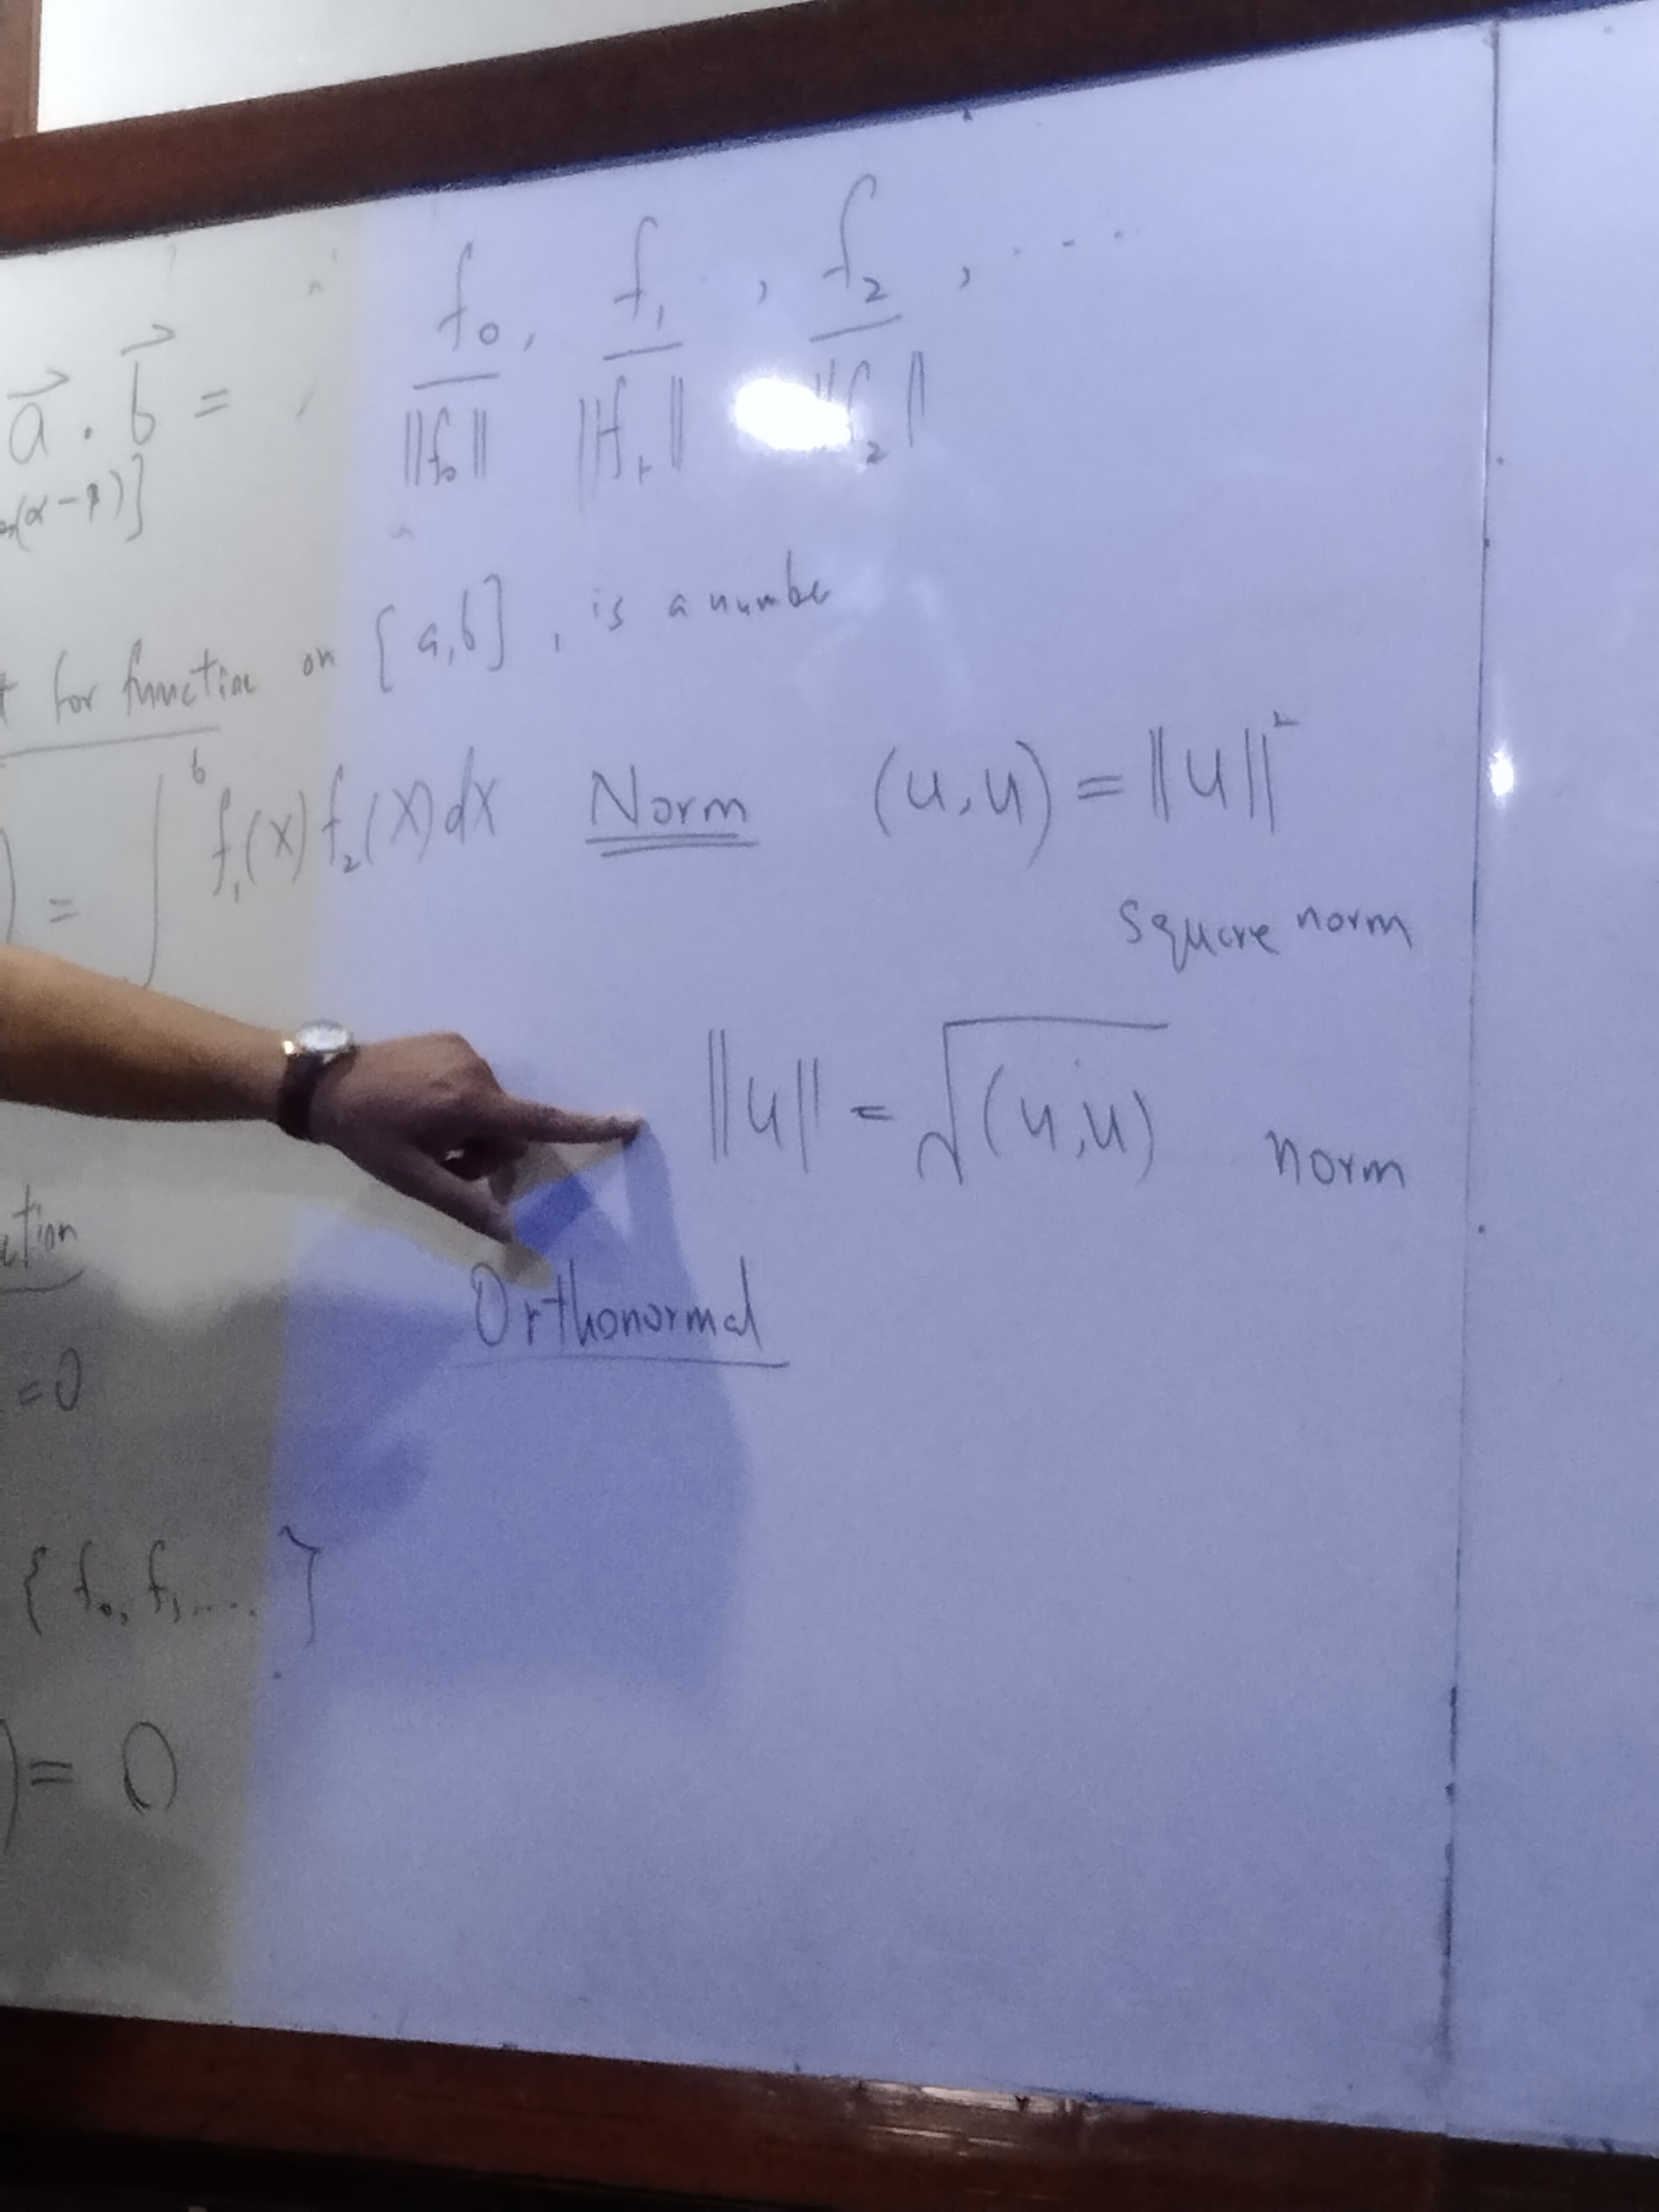 f₀, f₁ , f₂ , ....
‖f₀‖ ‖f₁‖ ‖f₂‖
a⃗ . b⃗ =
(α-β)]
for function on [a,b], is a numbe
= ∫ᵇ f₁(x) f₂(x) dx
Norm (u,u) = ‖u‖²
Square norm
‖u‖ = √(u,u) norm
Orthonormal
=0
{f₀, f₁, .... }
) = 0